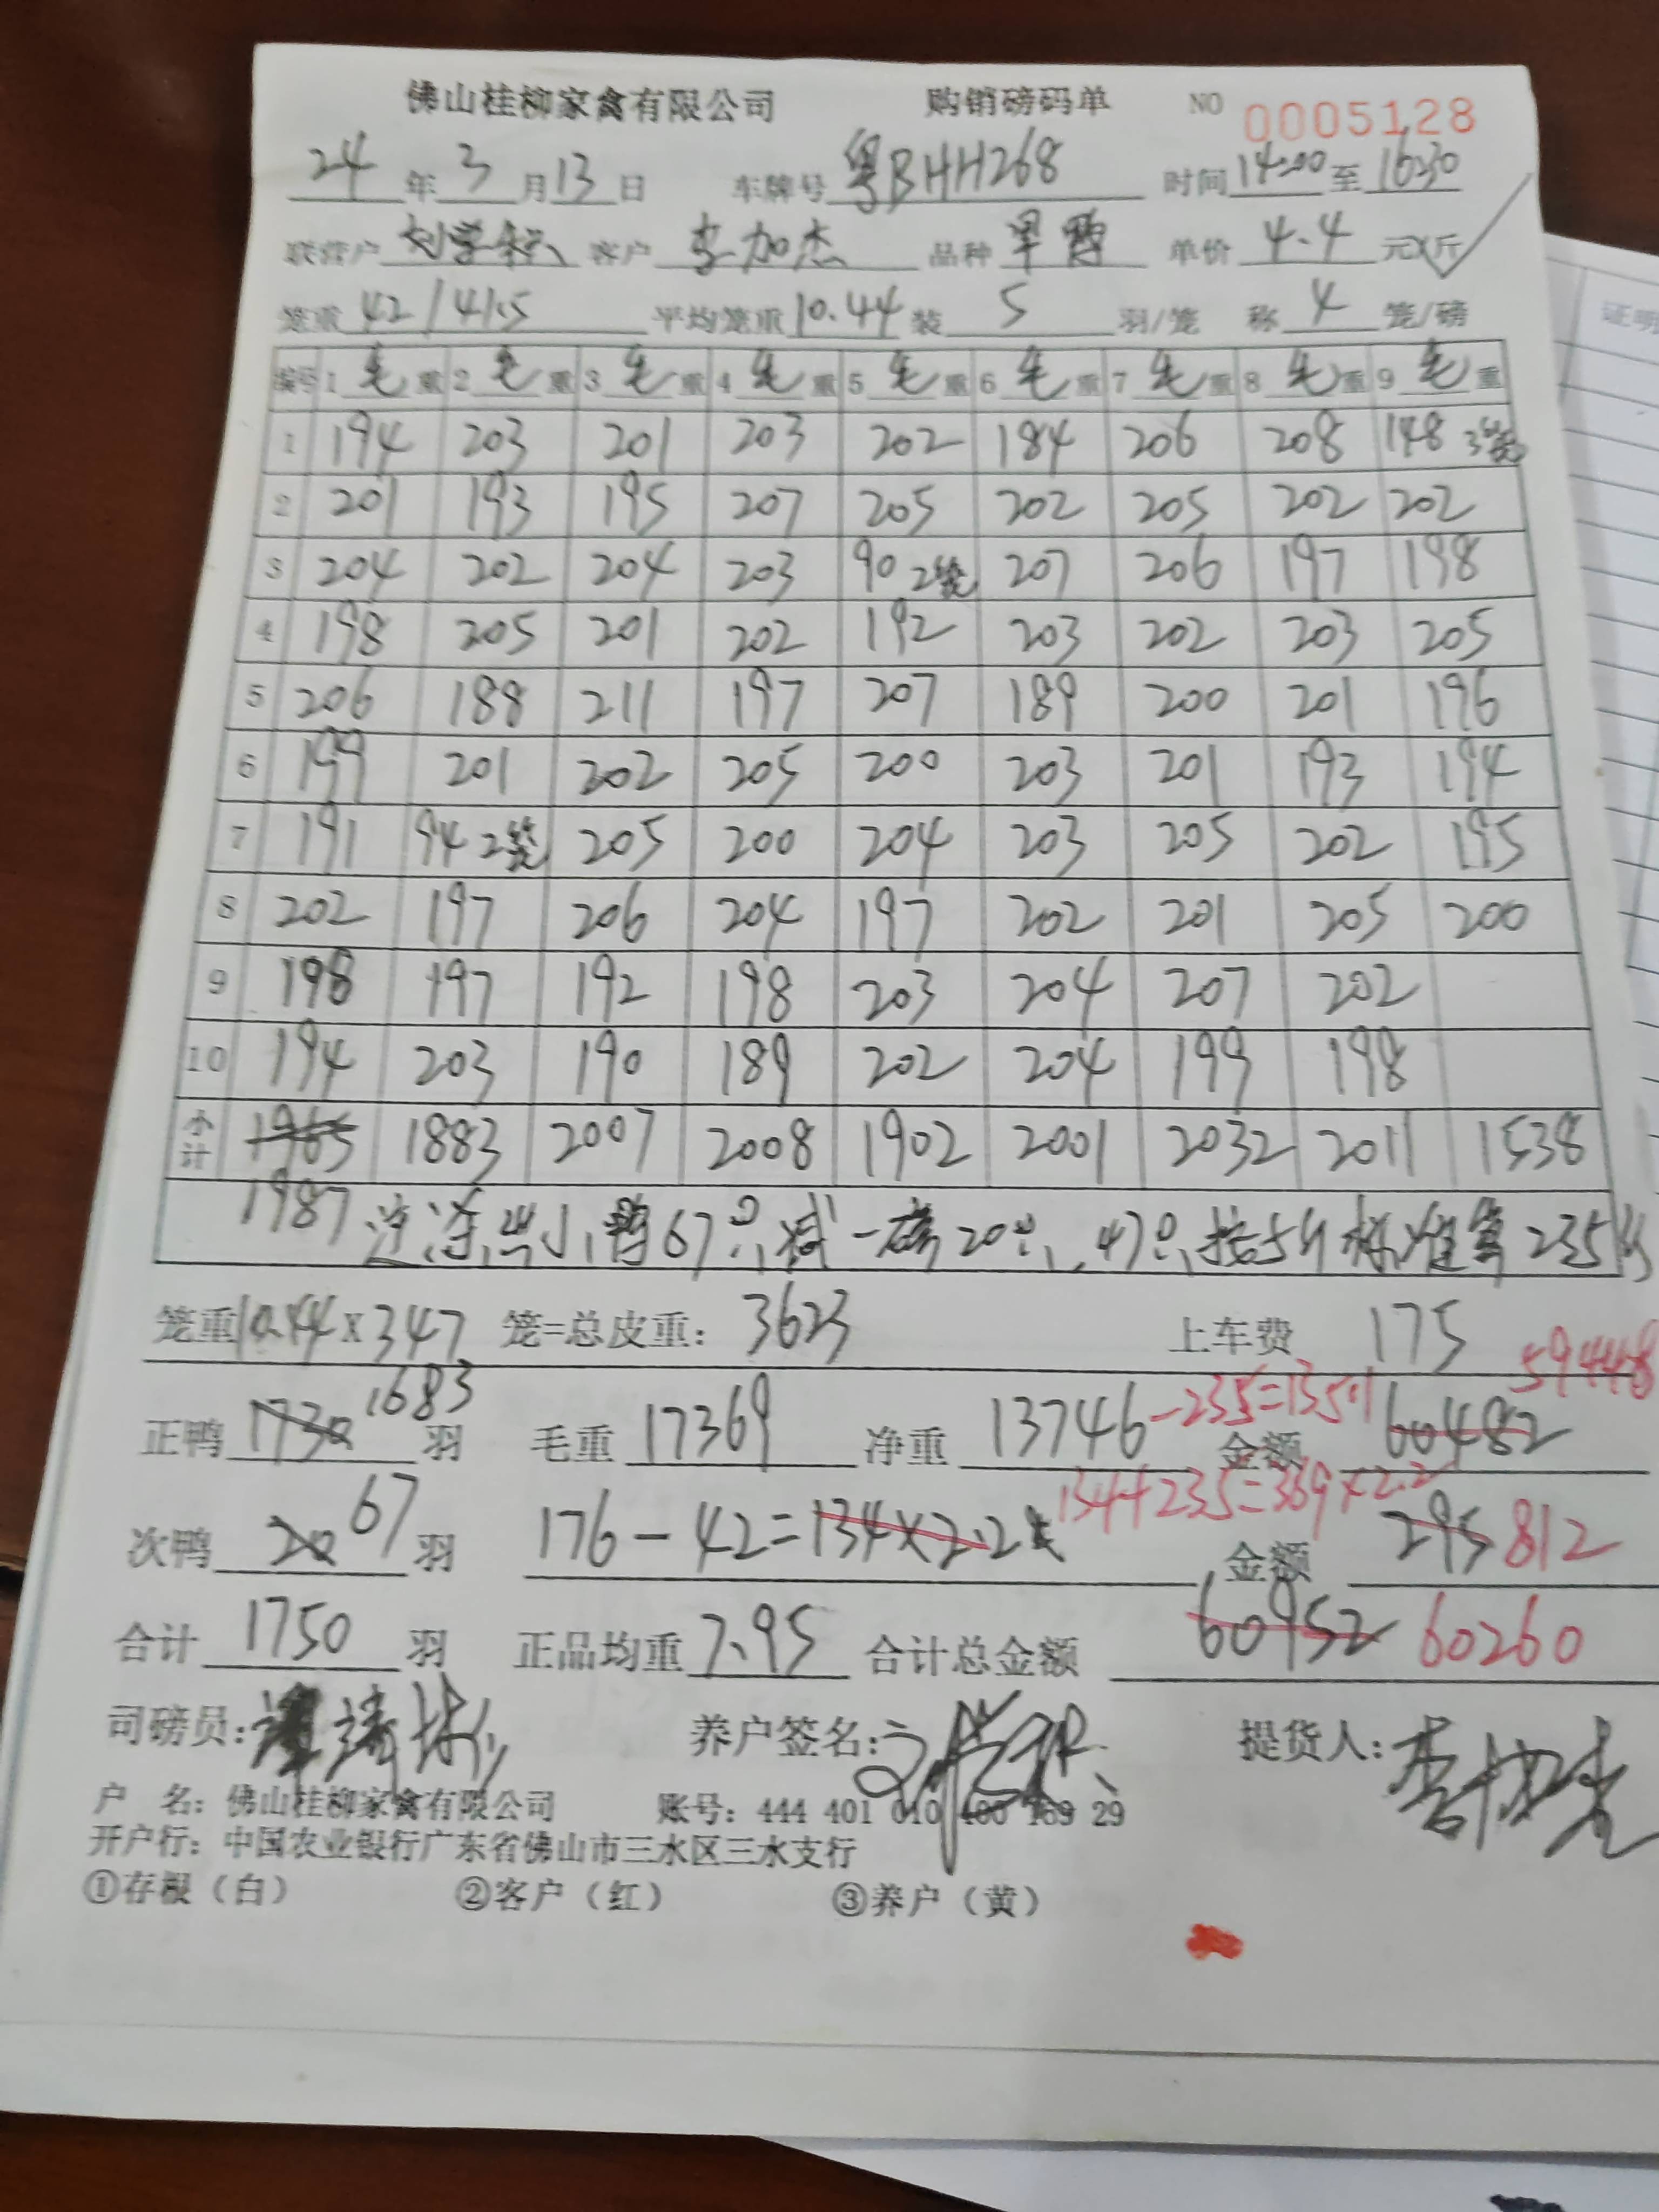 佛山桂柳家禽有限公司 购销磅码单 NO 0005128
24 年 3 月 13 日 车牌号 粤BHH268 时间 14:00 至 16:30
联营户 客户 李加杰 品种 单价 4.4 元/斤
笼重 42/41.5 平均笼重 10.44 装 5 羽/笼 称 4 笼/磅
编号 1 毛 重 2 毛 重 3 毛 重 4 毛 重 5 毛 重 6 毛 重 7 毛 重 8 毛 重 9 毛 重
1 194 203 201 203 202 184 206 208 148 3笼
2 201 193 195 207 205 202 205 202 202
3 204 202 204 203 90 2笼 207 206 197 198
4 198 205 201 202 192 203 202 203 205
5 206 188 211 197 207 189 200 201 196
6 199 201 202 205 200 203 201 193 194
7 191 94 2笼 205 200 204 203 205 202 195
8 202 197 206 204 197 202 201 205 200
9 198 197 192 198 203 204 207 202
10 194 203 190 189 202 204 199 198
小计 1965 1883 2007 2008 1902 2001 2032 2011 1538
1987 小鸭67只减一磅20只,47只按5斤标准算235斤
笼重 10.44 X 347 笼=总皮重: 3623 上车费 175
59448
正鸭 1730 1683 羽 毛重 17369 净重 13746 -235=13511 金额 60482
134+235=369×2.2
次鸭 20 67 羽 176-42=134×2.2 金额 295 812
合计 1750 羽 正品均重 7.95 合计总金额 60952 60260
司磅员: 养户签名: 提货人:
户 名: 佛山桂柳家禽有限公司 账号: 444 401 010 400 169 29
开户行: 中国农业银行广东省佛山市三水区三水支行
①存根(白) ②客户(红) ③养户(黄)
证明